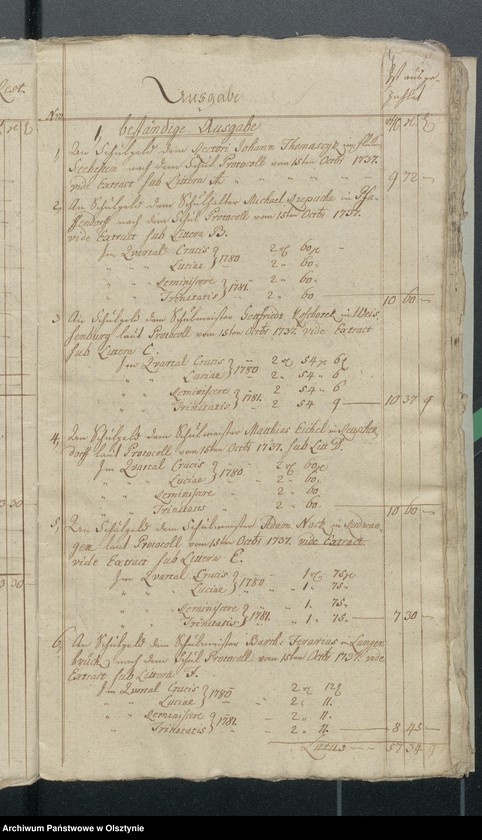 Rest.
Ausgabe
Ist ausge-
zahlet
Nro
1, beständige Ausgabe
1, An Schulgeld dem Rectori Johann Thomascyk im
Seehesten nach dem Schul Protocoll vom 15ten Octbr 1737.
vide Extract sub Littera A.
9 72 —
2, An Schulgeld dem Schulhalter Michael in Pfa-
ffendorff nach dem Schul Protocoll vom 15ten Octbr 1737.
vide Extract sub Littera B.
Im Quartal Crucis 2 60
Luciae 1780 2 60
Reminiscere 2 60
Trinitatis 1781. 2 60
10 60 —
3 An Schulgeld dem Schulmeister Gottfried in Weis-
senburg laut Protocoll vom 15ten Octbr 1737. vide Extract
sub Littera C.
Im Quartal Crucis 2 54 6
Luciae 1780 2 54 6
Reminiscere 2 54 6
Trinitatis 1781. 2 54 9
10 37 9
4, An Schulgeld dem Schulmeister Matthias Eichel in
dorff laut Protocoll vom 15ten Octbr 1737. sub Litt D.
Im Quartal Crucis 2 60
Luciae 1780 2 60
Reminiscere 2 60
Trinitatis 2 60
10 60 —
5, An Schulgeld dem Schulmeister Adam Nack in
gen laut Protocoll vom 15ten Octbr 1737. vide Extract
vide Extract sub Littera E.
Im Quartal Crucis 1 75
Luciae 1780 1 75
Reminiscere 1 75
Trinitatis 1781. 1 75
7 30 —
6, An Schulgeld dem Schulmeister Barth: Ferarius in Langen-
brück nach dem Schul Protocoll vom 15ten Octbr 1737. vide
Extract sub Littera F.
Im Quartal Crucis 2 12
Luciae 1780 2 11
Reminiscere 2 11
Trinitatis 1781. 2 11
8 45 —
Latus 57 34 9
3 30
3 30
Archiwum Państwowe w Olsztynie